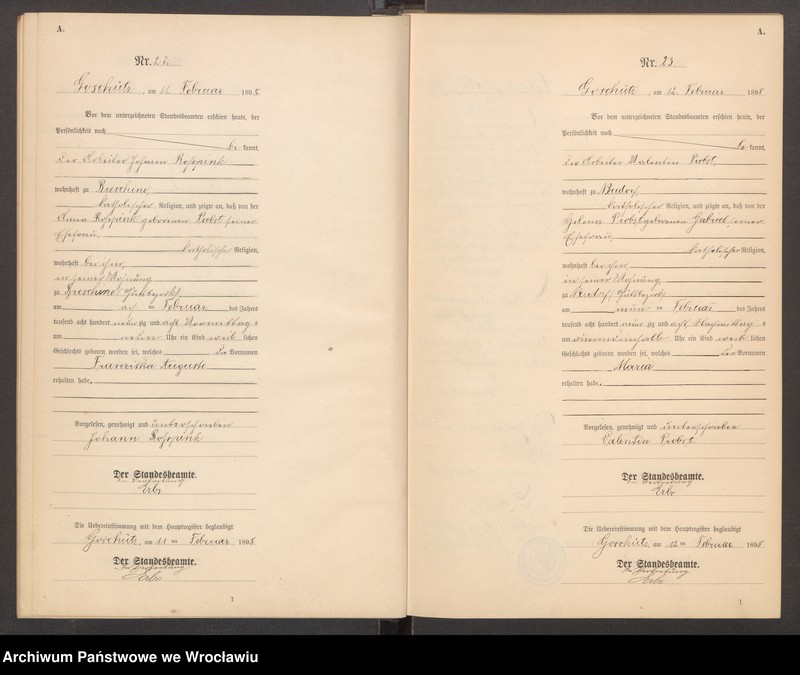 A.
Nr. 22
Goschütz, am 11 Februar 1898
Vor dem unterzeichneten Standesbeamten erschien heute, der
Persönlichkeit nach
be kannt,
der Arbeiter Johann
wohnhaft zu
katholischer Religion, und zeigte an, daß von der
Anna geborenen Probst seiner
Ehefrau,
katholischer Religion,
wohnhaft bei ihm,
in seiner Wohnung
zu Gutsbezirk
am ach ten Februar des Jahres
tausend acht hundert neun zig und acht Vormittags
um neun Uhr ein Kind weib lichen
Geschlechts geboren worden sei, welches die Vornamen
Franziska Auguste
erhalten habe.
Vorgelesen, genehmigt und unterschrieben
Johann
Der Standesbeamte.
In Vertretung
Erbs
Die Uebereinstimmung mit dem Hauptregister beglaubigt
Goschütz, am 11 ten Februar 1898
Der Standesbeamte.
In Vertretung
Erbs
1
A.
Nr. 23
Goschütz, am 12. Februar 1898
Vor dem unterzeichneten Standesbeamten erschien heute, der
Persönlichkeit nach
be kannt,
der Arbeiter Valentin Probst,
wohnhaft zu Neudorf,
katholischer Religion, und zeigte an, daß von der
Helena Probst geborenen Gabriel seiner
Ehefrau,
katholischer Religion,
wohnhaft bei ihm,
in seiner Wohnung,
zu Neudorf, Gutsbezirk
am neun ten Februar des Jahres
tausend acht hundert neun zig und acht Nachmittags
um Uhr ein Kind weib lichen
Geschlechts geboren worden sei, welches den Vornamen
Maria
erhalten habe.
Vorgelesen, genehmigt und unterschrieben
Valentin Probst
Der Standesbeamte.
In Vertretung
Erbs
Die Uebereinstimmung mit dem Hauptregister beglaubigt
Goschütz, am 12 ten Februar 1898
Der Standesbeamte.
In Vertretung
Erbs
1
Archiwum Państwowe we Wrocławiu